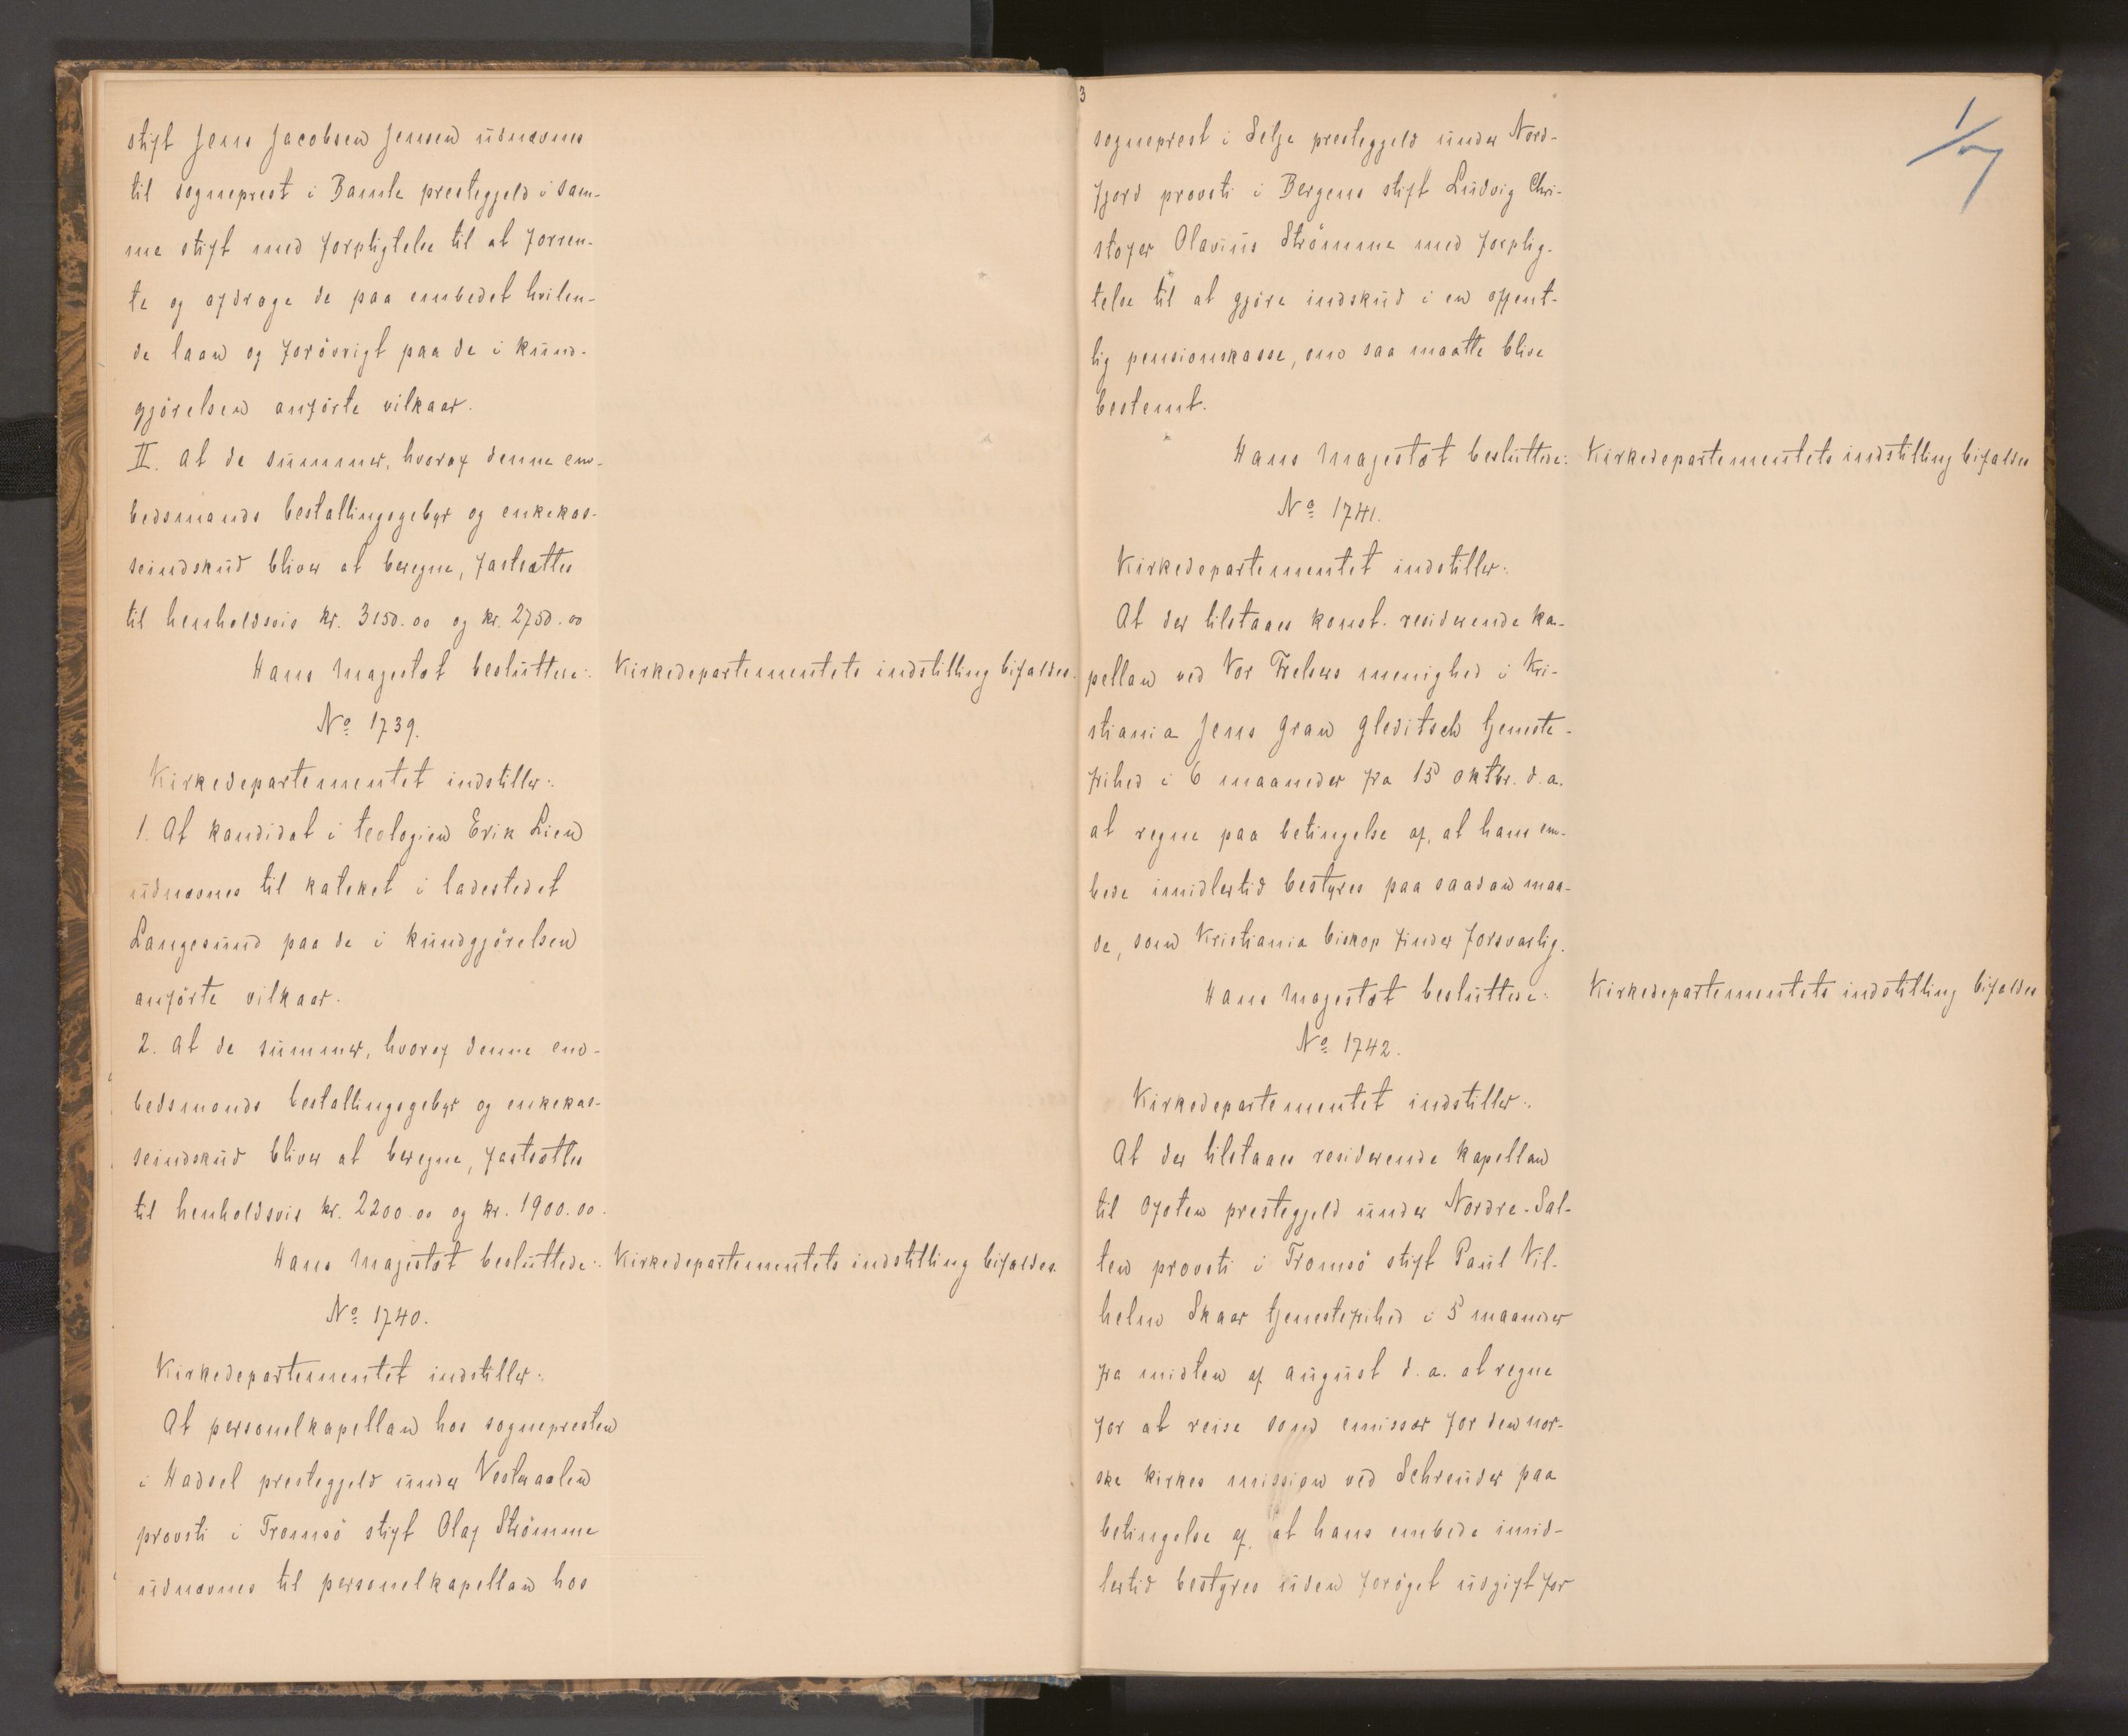 stift Jens Jacobsen Jensen udnævnes
til sogneprest i Bamle prestegjeld i sam-
me stift med forpligtelse til at forren-
te og afdrage de paa embedet hvilen-
de laan og forövrigt paa de i kund-
gjörelsen anförte vilkaar.
II. At de summer, hvoraf denne em-
bedsmands bestallingsgebyr og enkekas-
seindskud bliver at beregne, fastsættes
til henholdsvis kr. 3150.00 og kr. 2750.00
Hans Majestæt besluttede: Kirkedepartementets indstilling bifaldes.
No 1739.
Kirkedepartementet indstiller:
1. At kandidat i teologien Erik Lien
udnævnes til kateket i ladestedet
Langesund paa de i kundgjörelsen
anförte vilkaar.
2. At de summer, hvoraf denne em-
bedsmands bestallingsgebyr og enkekas-
seindskud bliver at beregne, fastsættes
til henholdsvis kr. 2200.00 og kr. 1900.00.
Hans Majestæt besluttede: Kirkedepartementets indstilling bifaldes.
No 1740.
Kirkedepartementet indstiller:
At personelkapellan hos sognepresten
i Hadsel prestegjeld under Vesteraalen
provsti i Tromsö stift Olaf Strömme
udnævnes til personelkapellan hos
3
sogneprest i Selje prestegjeld under Nord-
fjord provsti i Bergens stift Ludvig Chri-
stofer Olavius Strömme med forplig-
telse til at gjöre indskud i en offent-
lig pensionskasse, om saa maatte blive
bestemt.
Hans Majestæt besluttede: Kirkedepartementets indstilling bifaldes
No 1741.
Kirkedepartementet indstiller:
At der tilstaaes konst. residerende ka-
pellan ved Vor Frelsers menighed i Kri-
stiania Jens Gran Gleditsch tjeneste-
frihed i 6 maaneder fra 15 oktbr. d.a.
at regne paa betingelse af, at hans em-
bede imidlertid bestyres paa saadan maa-
de, som Kristiania biskop finder forsvarlig.
Hans Majestæt besluttede: Kirkedepartementets indstilling bifaldes
No 1742.
Kirkedepartementet indstiller:
At der tilstaaes residerende kapellan
til Ofoten prestegjeld under Nordre-Sal-
ten provsti i Tromsö stift Paul Vil-
helm Skaar tjenestefrihed i 5 maaneder
fra midten af august d.a. at regne
for at reise som emissær for den nor-
ske kirkes mission ved Schreuder paa
betingelse af, at hans embede imid-
lertid bestyres uden foröget udgift for
1/7